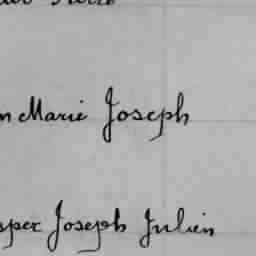 n Marie Joseph
sper Joseph Julien